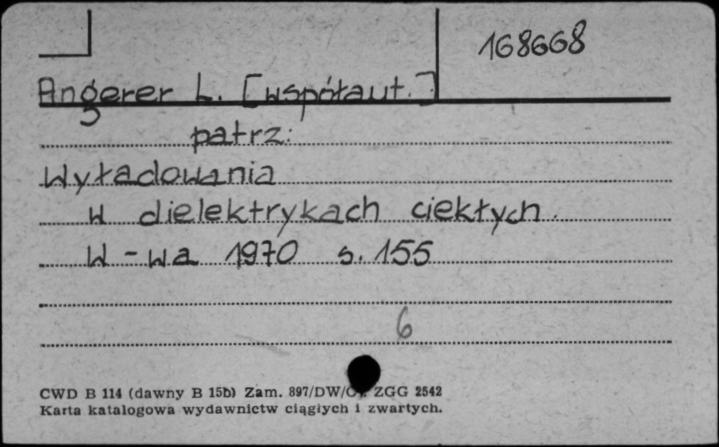 168668
Angerer L. [współaut.]
patrz:
Wyładowania
w dielektrykach ciekłych.
W-wa 1970 s. 155
6
CWD B 114 (dawny B 15b) Zam. 897/DW/ ZGG 2542
Karta katalogowa wydawnictw ciągłych i zwartych.